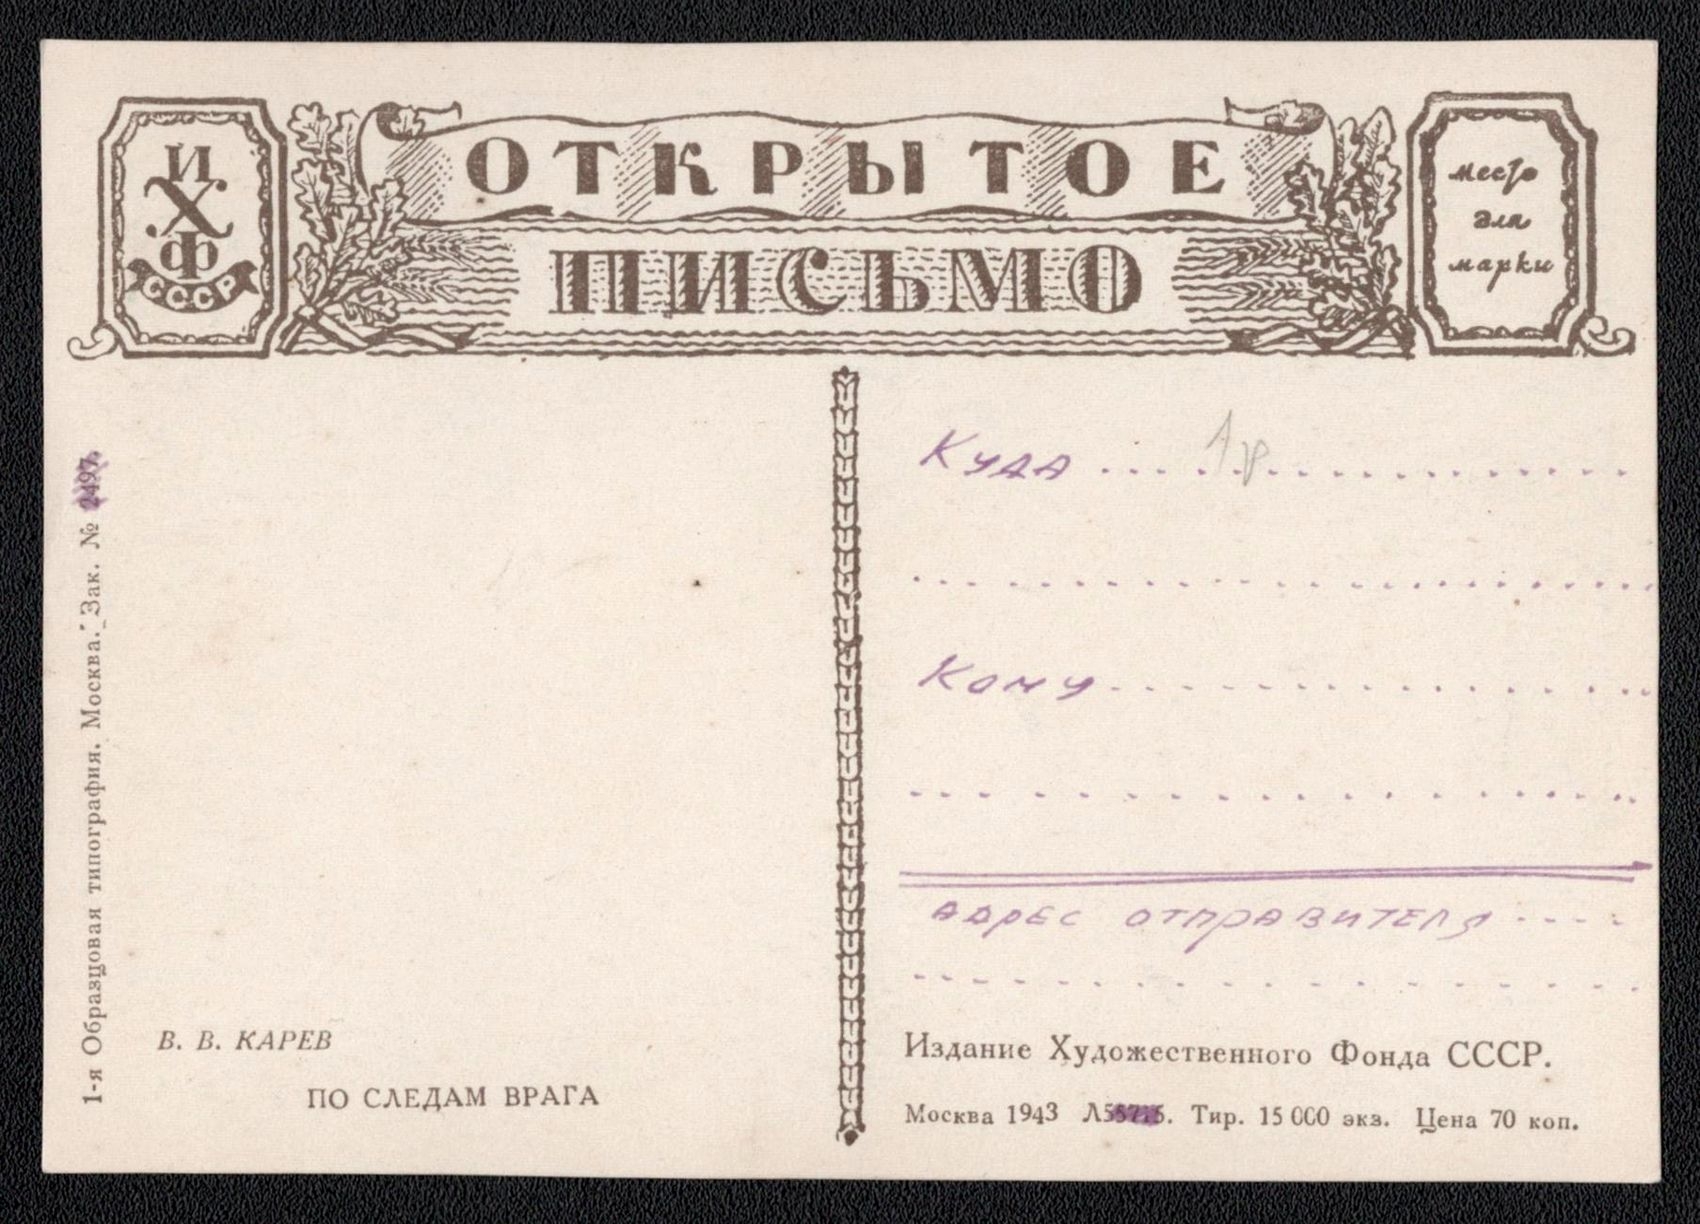 И
Х
Ф
СССР
ОТКРЫТОЕ
ПИСЬМО
место
для
марки
1-я Образцовая типография. Москва. Зак. № 2497.
В. В. КАРЕВ
ПО СЛЕДАМ ВРАГА
Куда
1р
Кому
адрес отправителя
Издание Художественного Фонда СССР.
Москва 1943 Тир. 15 000 экз. Цена 70 коп.